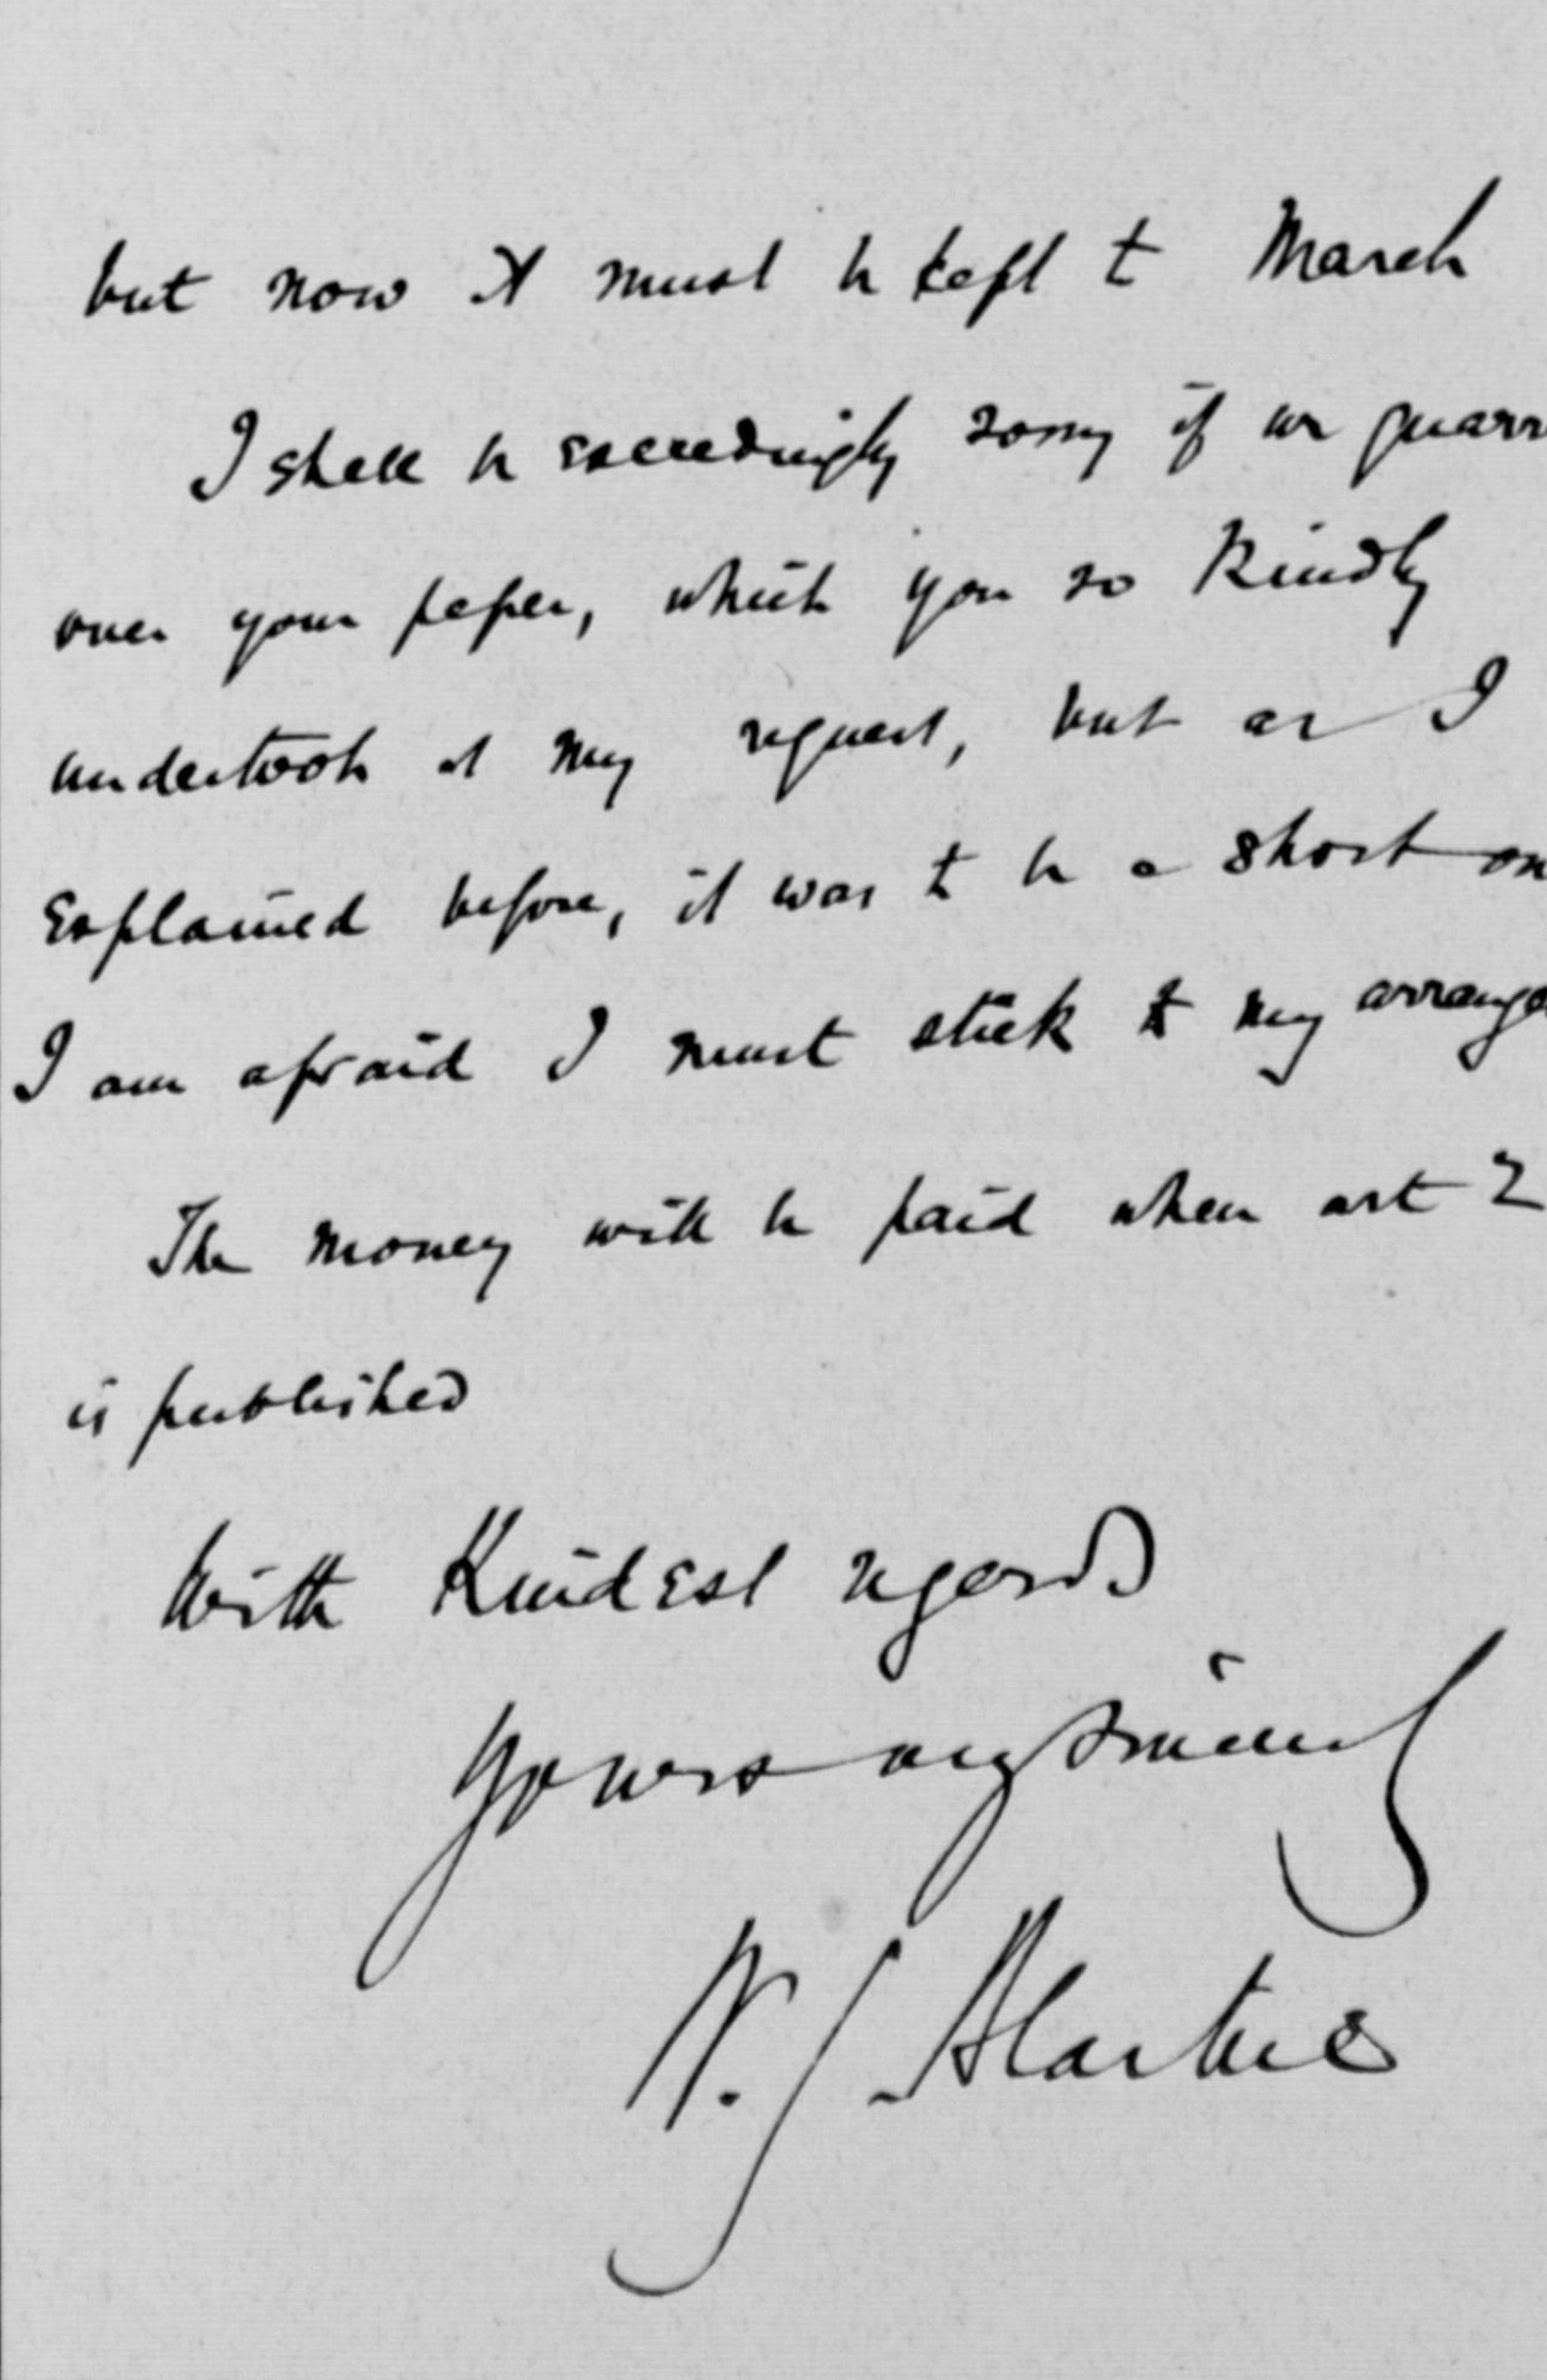 but now it must be kept to March
I shall be exceedingly sorry if we quarr
over your paper, which you so kindly
undertook at my request, but as I
explained before, it was to be a short on
I am afraid I must stick to my arrange
The money will be paid when art 2
is published
With Kindest regards
Yours very sincerely
W. J.